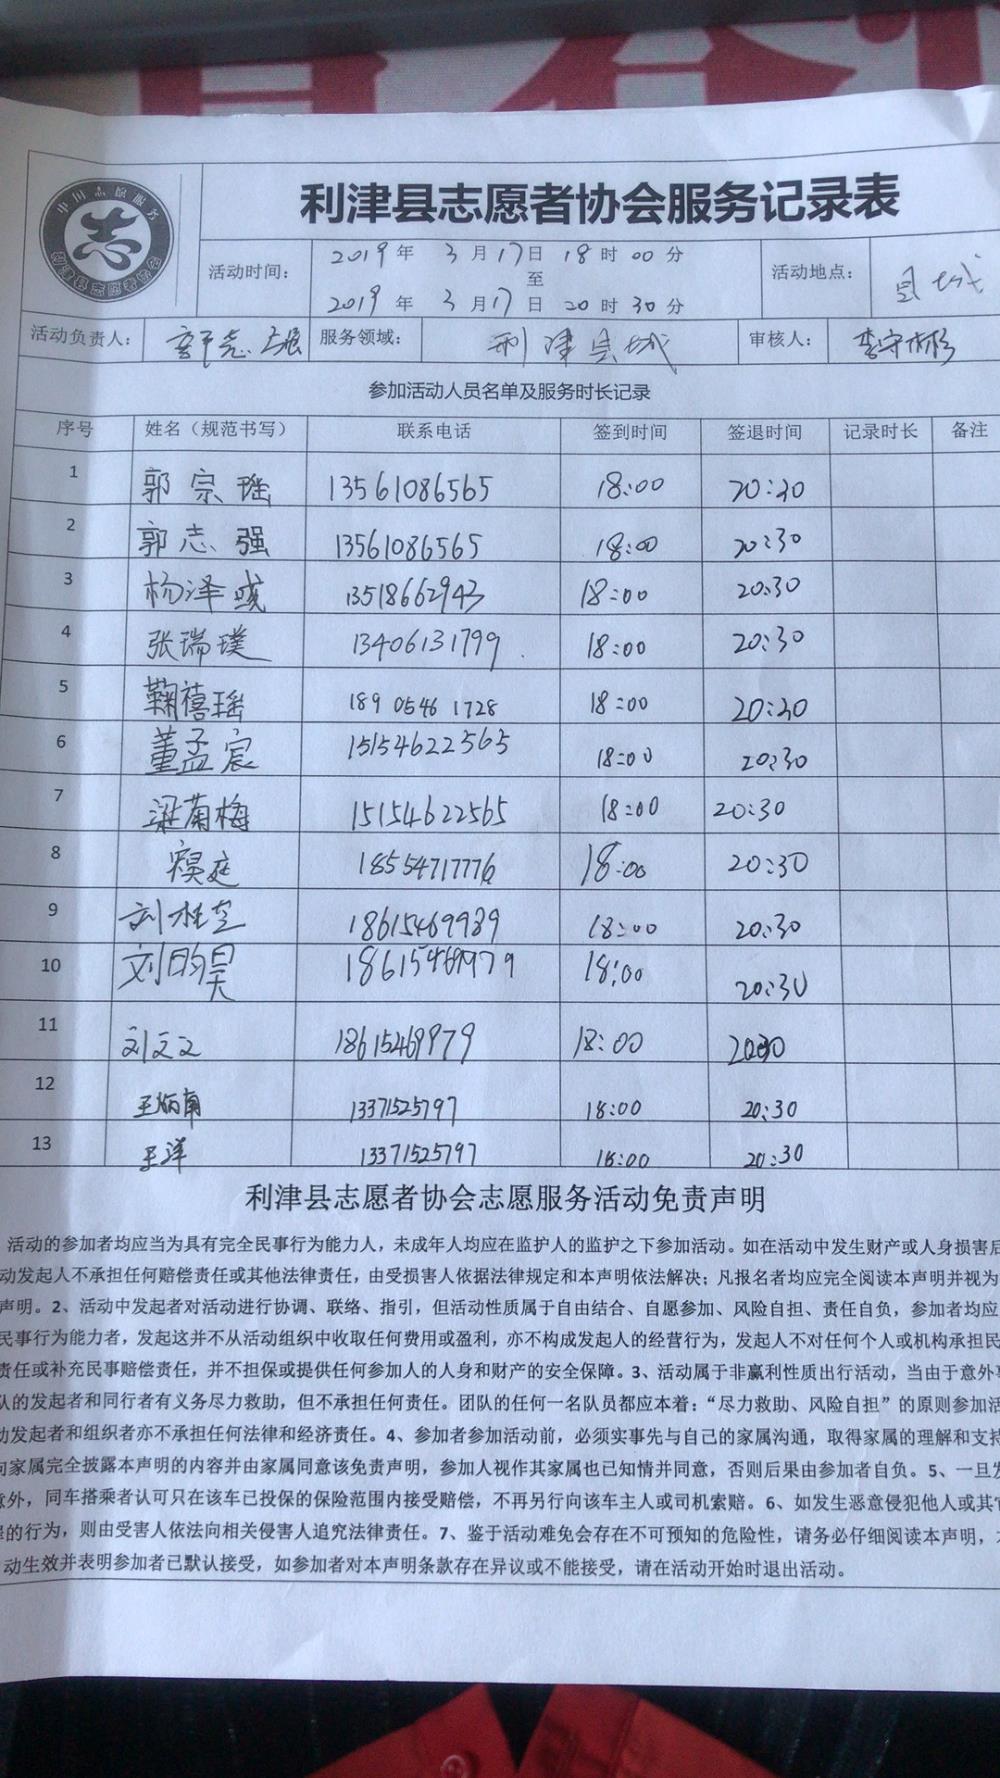 中国志愿服务
志
利津县志愿者协会服务记录表
活动时间： 2019年 3月17日 18时00分
至
2019年 3月17日 20时30分
活动地点： 县城
活动负责人： 服务领域： 利津县城 审核人：
参加活动人员名单及服务时长记录
序号 姓名（规范书写） 联系电话 签到时间 签退时间 记录时长 备注
1 郭宗瑶 13561086565 18:00 20:30
2 郭志强 13561086565 18:00 20:30
3 杨泽彧 13518662943 18:00 20:30
4 张瑞璞 13406131799 18:00 20:30
5 鞠禧瑶 189 0546 1728 18:00 20:30
6 董孟宸 15154622565 18:00 20:30
7 梁菊梅 15154622565 18:00 20:30
8 18554717776 18:00 20:30
9 刘桂芝 18615469939 18:00 20:30
10 刘昀昊 18615469979 18:00 20:30
11 刘文文 18615469979 18:00 20:30
12 王炳南 13371525797 18:00 20:30
13 王洋 13371525797 18:00 20:30
利津县志愿者协会志愿服务活动免责声明
活动的参加者均应当为具有完全民事行为能力人，未成年人均应在监护人的监护之下参加活动。如在活动中发生财产或人身损害后
动发起人不承担任何赔偿责任或其他法律责任，由受损害人依据法律规定和本声明依法解决；凡报名者均应完全阅读本声明并视为
声明。2、活动中发起者对活动进行协调、联络、指引，但活动性质属于自由结合、自愿参加、风险自担、责任自负，参加者均应
民事行为能力者，发起这并不从活动组织中收取任何费用或盈利，亦不构成发起人的经营行为，发起人不对任何个人或机构承担民
责任或补充民事赔偿责任，并不担保或提供任何参加人的人身和财产的安全保障。3、活动属于非赢利性质出行活动，当由于意外
队的发起者和同行者有义务尽力救助，但不承担任何责任。团队的任何一名队员都应本着：“尽力救助、风险自担”的原则参加活
动发起者和组织者亦不承担任何法律和经济责任。4、参加者参加活动前，必须实事先与自己的家属沟通，取得家属的理解和支持
向家属完全披露本声明的内容并由家属同意该免责声明，参加人视作其家属也已知情并同意，否则后果由参加者自负。5、一旦发
意外，同车搭乘者认可只在该车已投保的保险范围内接受赔偿，不再另行向该车主人或司机索赔。6、如发生恶意侵犯他人或其
的行为，则由受害人依法向相关侵害人追究法律责任。7、鉴于活动难免会存在不可预知的危险性，请务必仔细阅读本声明，
动生效并表明参加者已默认接受，如参加者对本声明条款存在异议或不能接受，请在活动开始时退出活动。